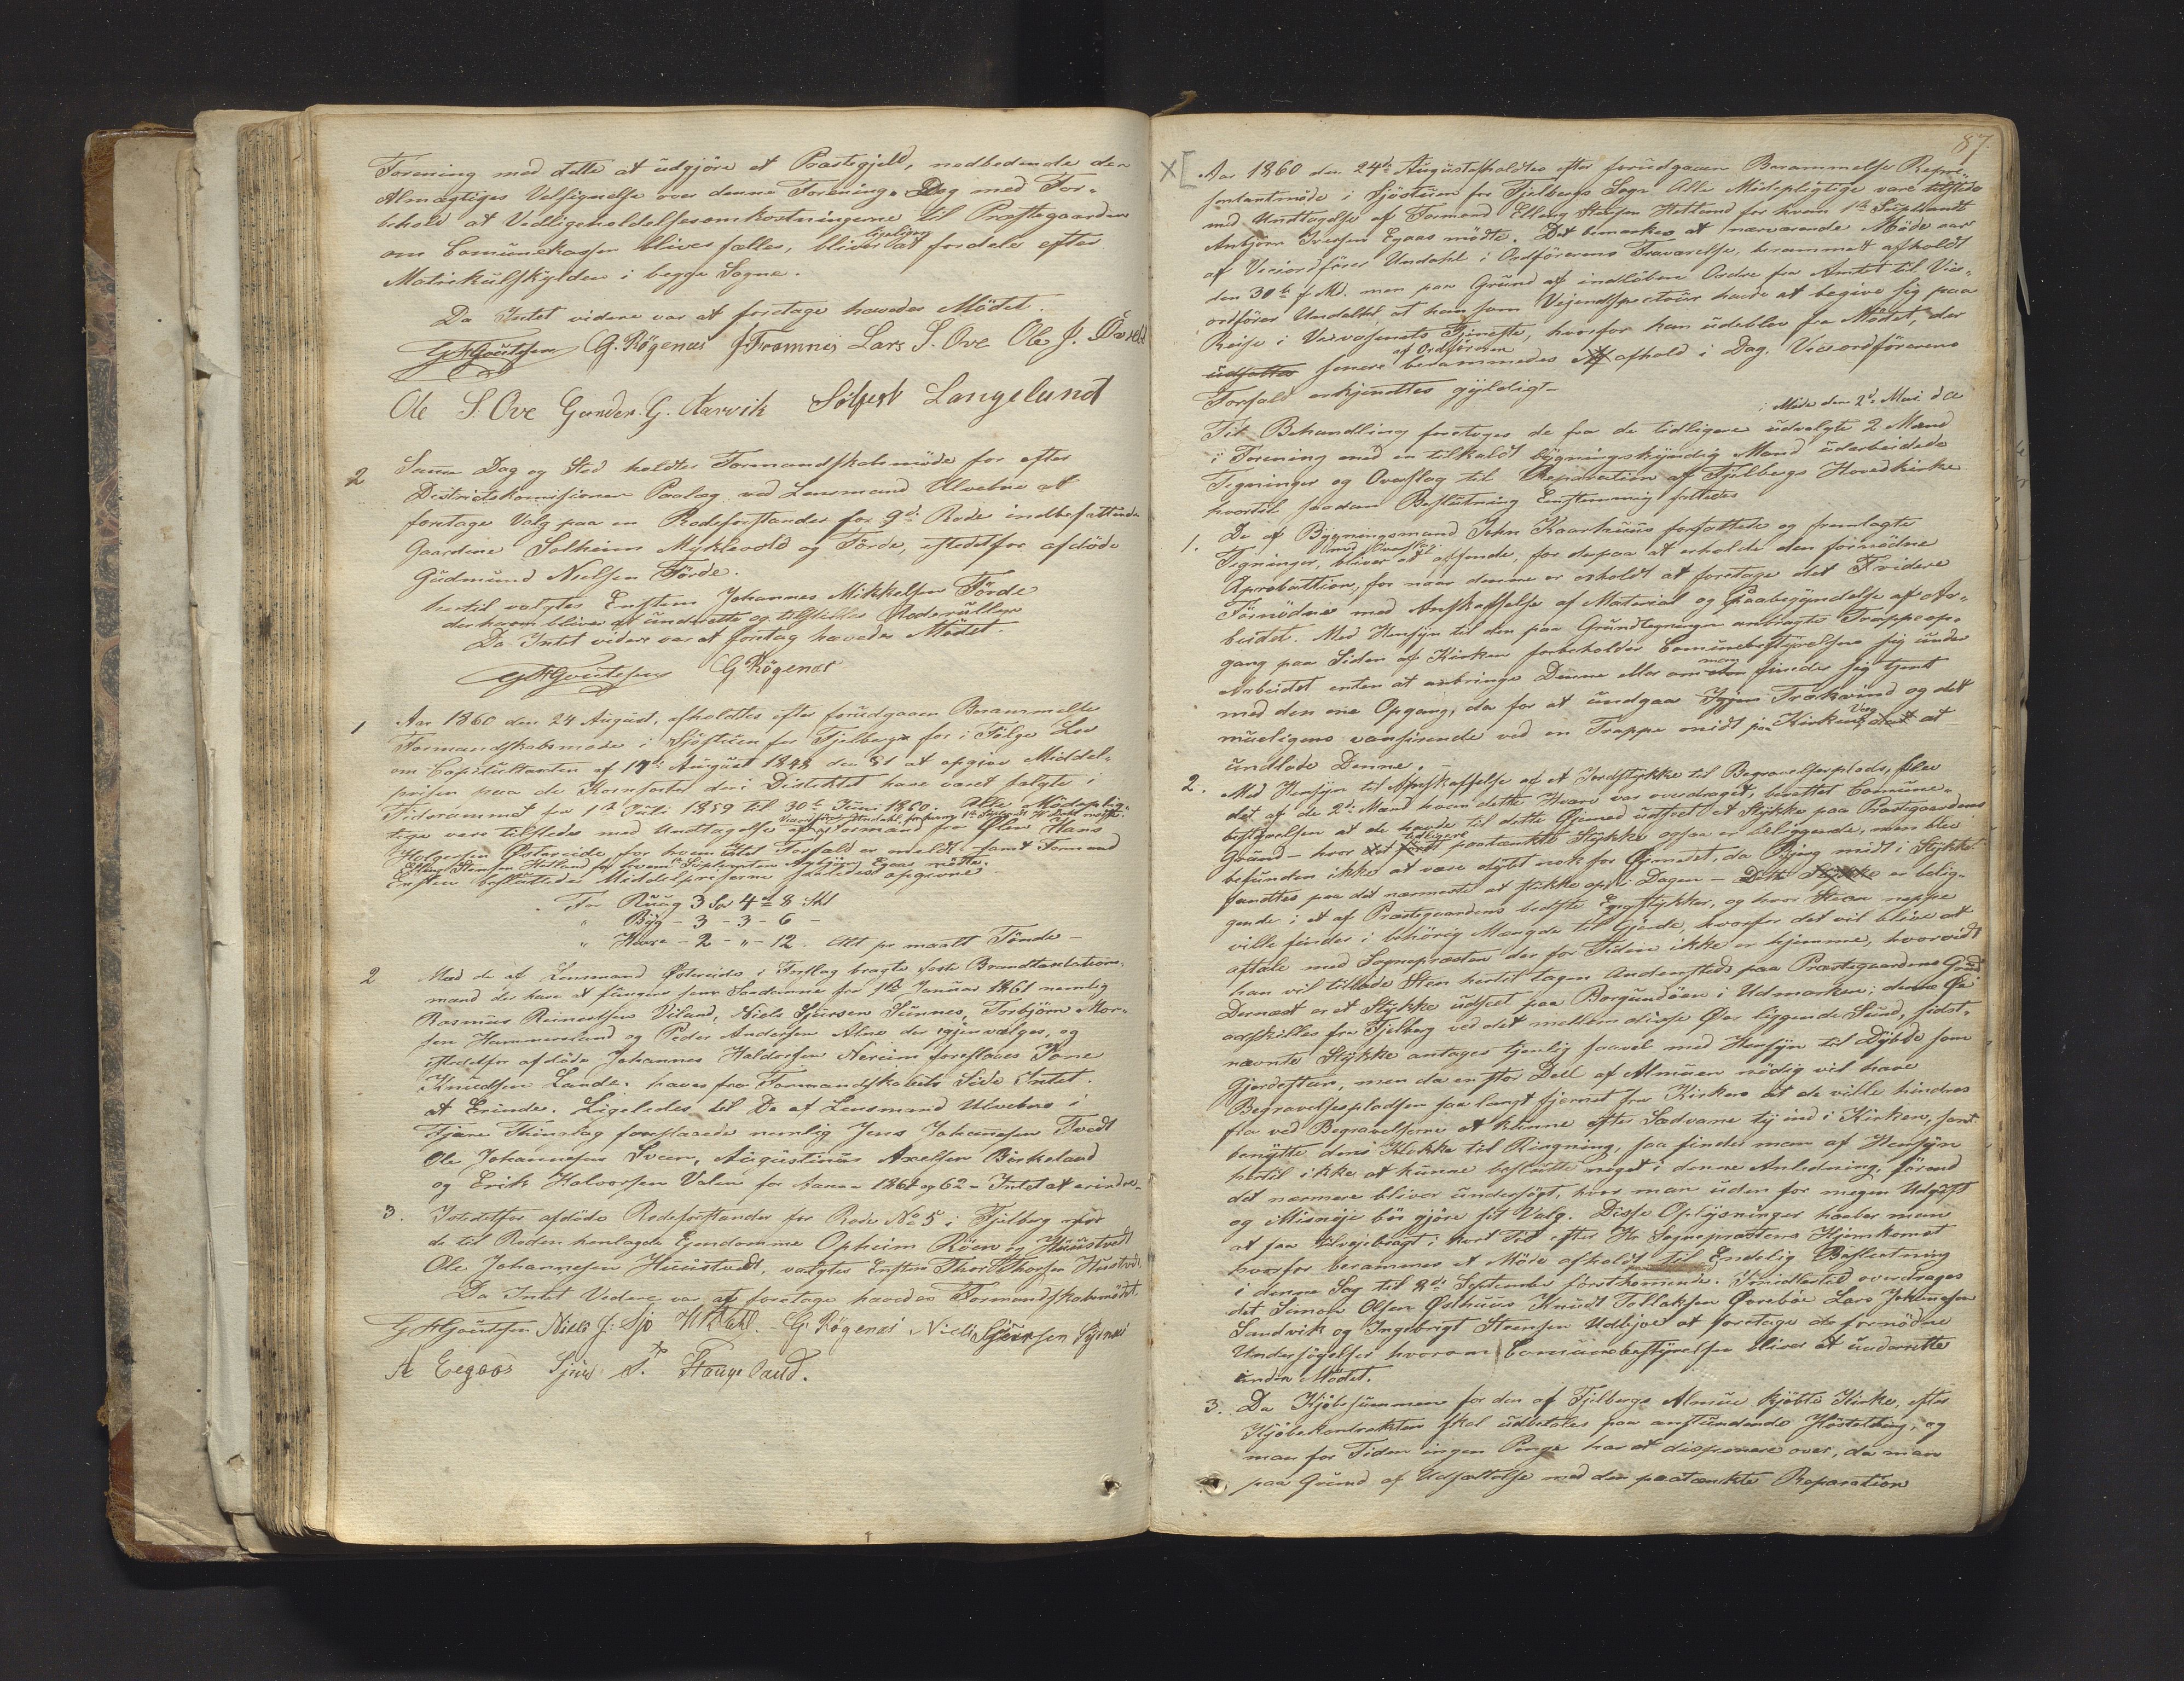 Forening med dette at udgjöre et Præstegjeld, nedbedende den
Almægtiges Velsignelse over denne Forening. Dog med For-
behold at Vedligeholdelsesomkostningerne til Præstegaarden
om Comünekassen bliver fælles, bliver ligelinge at fordele efter
Matrikulskylden i begge Sogne.
Da Intet videre var at foretage hævedes Mödet.
G. Røgenæs J. Framnes Lars S. Ove Ole J.
Ole S. Ove Gunder G. Aarvik Sölfest Langelund
2 Samme Dag og Sted holdtes Formandskabsmöde for efter
Districtskomisionens Paalæg ved Lensmand Ulvebne at
foretage Valg paa en Rodeforstander for 9de Rode indbefattende
Gaardene Solheim Myklevold og Förde, istedetfor afdöde
Gudmund Nielsen Förde.
hertil valgtes Enstem Johannes Mikkelsen Förde
derhvom bliver at underrette og tilstilles Roderullen
Da Intet videre var at foretag hævedes Mödet.
G Røgenæs
1 Aar 1860 den 24 August, afholdtes efter forudgaaen Berammelse
Formandskabsmöde i Sjöstuen for Fjelberg for i Fölge Lov
om Capitultaxten af 17de August 1848 den §1 at opgive Middel-
prisen paa de Kornsorter der i Distriktet have været solgte i
Tidsrummet fra 1ste Juli 1859 til 30te Juni 1860. Alle Mödeplig-
tige vare tilstedes med Undtagelse af Formand for Ølen Hans
Viceordförer Undahl, forhvem 1ste Supleant H Dahl mödte.
Helgesen Østereide for hvem Intet Forfald er meldt samt Formand
Elling Steensen Hetland for hvem Suplianten Anbjörn Egaas mödte.
Enstem besluttedes Middelpriserne saaledes opgivne
For Ruug 3 Sp 4 ort 8 skl
" Byg - 3 - 3 - 6 -
" Havre - 2 - " - 12. Alt pr maalt Tönde -
2 Med de af Lensmand Østereide i Forslag bragte faste Brandtaxtations-
mænd der have at fungere som Saadanne fra 1ste Januar 1861 nemlig
Rasmus Reinertsen Viland, Niels Sjursen Sünnes, Torbjörn Mor-
sen Hammersland og Peder Andersen Alne der igjenvælges, og
istedetfor afdöde Johannes Haldorsen Nereim foreslaaes Tore
Knudsen Lande. haves fra Formandskabets Side Intet
at Erindre. Ligeledes til De af Lensmand Ulvebne i
Fjære Thinglag foreslaaede nemlig Jens Johanesen Tvedt
Ole Johannesen Sveen, Augustinus Axelsen Birkeland
og Erik Halvorsen Valen for Aarene 1861 og 62 - Intet at erindre.
3. Istedetfor afdöde Rodeforstander for Rode No 5 i Fjelberg med
de til Roden henlagte Ejendomme Opheim Röen og Huustvedt
Ole Johannesen Huustvedt, valgtes Enstem Thor Thorsen Hustvedt.
Da Intet Videre var at foretage hævedes Formandskabsmödet.
Niels J. Sjo H Dahl. G. Røgenæs Niels Sjursen Synnes
A Eegaas Sjur S. Haugeland.
87.
Aar 1860 den 24de August afholdtes efter forudgaaen Berammelse Repræ-
sentantmöde i Sjöstuen for Fjelbergs Sogn Alle Mödepligtige vare tilstede
med Undtagelse af Formand Elling Steensen Hetland for hvem 1ste Supleant
Anbjörn Iversen Egaas mödte. Det bemærkes at nærværende Möde var
af Viceordförer Undahl i Ordförerens Fraværelse, berammet afholdt
den 30te f. Md. men paa Grund af indlöben Ordre fra Amtet til Vice-
ordförer Undahl at han som Vejendspecteur havde at begive sig paa
Reise i Veivæsenets Tjeneste, hvorfor han udeblev fra Mödet, der
udsattes senere af Ordföreren berammedes afhold i Dag. Viceordförerens
Forfald erkjendtes gyldigt.
Til Behandling foretoges de fra de tidligere i Möde den 2de Mai d A udvalgte 2 Mænd
i Forening med en tilkaldt bygningskyndig Mand udarbeidede
Tegninger og Overslag til Reparation af Fjelbergs Hovedkirke
hvortil saadan Beslutning Eenstemmig fattedes
1. De af Bygningsmand John Kaarhuus forfattede og fremlagte
Tegninger, med Overslag bliver at afsende, for derpaa at erholde den fornödne
Aprobattion, for naar denne er erholdt at foretage det Videre
Fornödne med Anskaffelse af Material og Paabegyndelse af Ar-
beidet. Med Hensyn til den paa Grundtegningen anbragte Trappeop-
gang paa Siden af Kirken forbeholder Comunebestyrelsen sig under
Arbeidet enten at anbringe Denne eller om man finder sig tjent
med den ene Opgang, da for at undgaa Trækvind og det
mueligens vansirende ved en Trappe midt paa Kirkens Væg at
undlade Denne.
2. Med Hensyn til Anskaffelse af et Jordstykke til Begravelsesplads, blev
det af de 2de Mænd hvem dette Hverv var overdraget, berettet Comune-
bestyrelsen at de havde til dette Øiemed udseet et Stykke paa Præstegaardens
Grund - hvor det tidligere paatænkte Stykke ogsaa er beliggende, men blev
befunden ikke at være dybt nok for Øiemedet, da Bjerg midt i Stykket
fandtes paa det nærmeste at stikke op i Dagen - Dette er belig-
gende i et af Præstegaardens bedste Engstykker, og hvor Steen neppe
ville findes i behörig Mængde til Gjerde, hvorfor det vil blive at
aftale med Sognepræsten der for Tiden ikke er hjemme, hvorvidt
han vil tillade Sten hertil tagen Andensteds paa Præstegaardens Grund.
Dernæst er et Stykke udseet paa Borgundöen i Udmarken; denne Øe
adskilles fra Fjelberg ved det mellem disse Øer liggende Sund, sidst-
nævnte Stykke antages tjenlig saavel med Hensyn til Dybde som
Gjerdesteen, men da en stor Deel af Almuen nödig vil have
Begravelsespladsen saa langt fjernet fra Kirken at de ville hindres
fra ved Begravelserne at kunne efter Sædvane ty ind i Kirken, samt
benytte dens Klokke til Ringning, saa finder man af Hensyn
hertil ikke at kunne beslutte noget i denne Anledning, förend
det nærmere bliver undersögt, hvor man uden for megen Udgift
og Misnöje bör gjöre sit Valg. Disse Oplysninger haaber man
at faa tilvejebragt i kort Tid efter Hr Sognepræstens Hjemkomst
hvorfor berammes et Möde afholdt til Endelig Beslutning
i denne Sag til 8de September förstkomende. Imidlertid overdrages
det Simon Olsen Østhuus Knudt Tollaksen Øvreböe Lars Johanesen
Sandvik og Ingebrigt Steensen Udbjoe at foretage de fornödne
Undersögelser hvorom Comunebestyrelsen bliver at underrette
inden Mödet.
3. Da Kjöbesummen for den af Fjelbergs Almue kjöbte Kirke, efter
Kjöbekontrakten skal udbetales paa anstundende Höstething, og
man for Tiden ingen Penge har at disponere over, da man
paa Grund af Udsættelse med den paatænkte Reparation